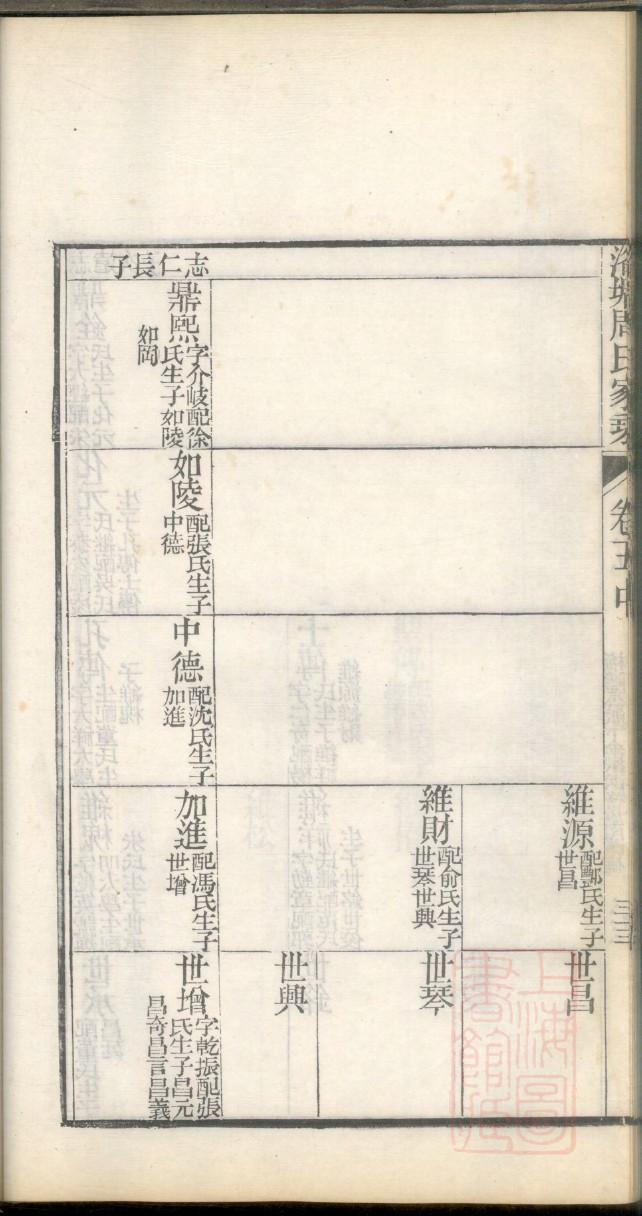 周氏家乘
卷五中
維源配酈氏生子
世昌
世昌
維財配俞氏生子
世琴世興
世琴
世興
志仁長子
鼎熙字介岐配徐
氏生子如陵
如岡
如陵配張氏生子
中德
中德配沈氏生子
加進
加進配馮氏生子
世增
世增字乾振配張
氏生子昌元
昌奇昌言昌義
上海圖
書館藏